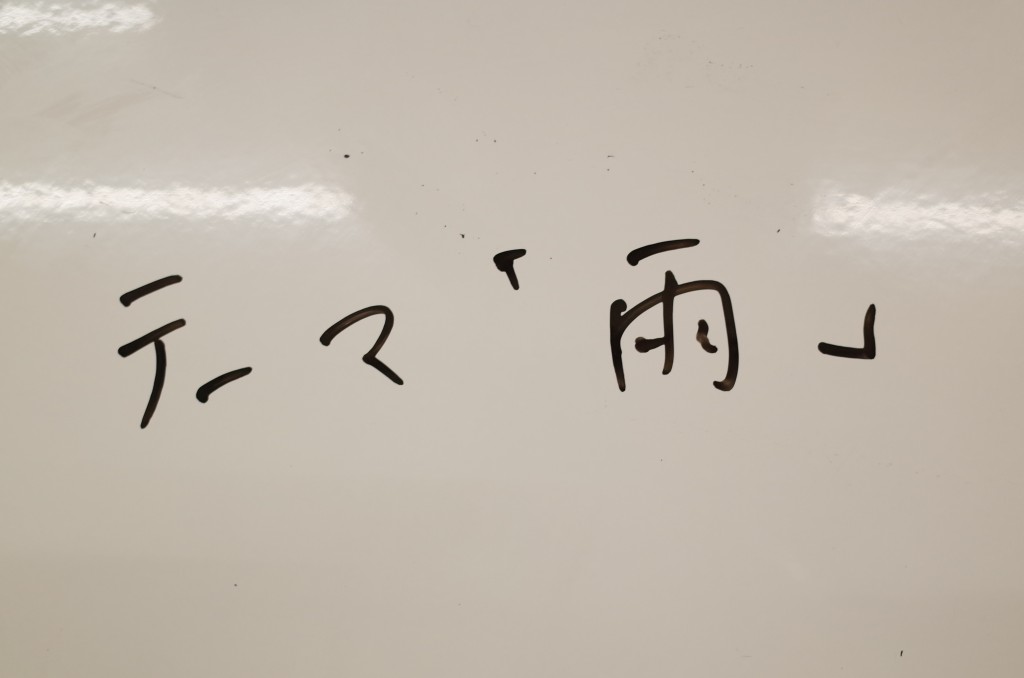 テーマ「雨」